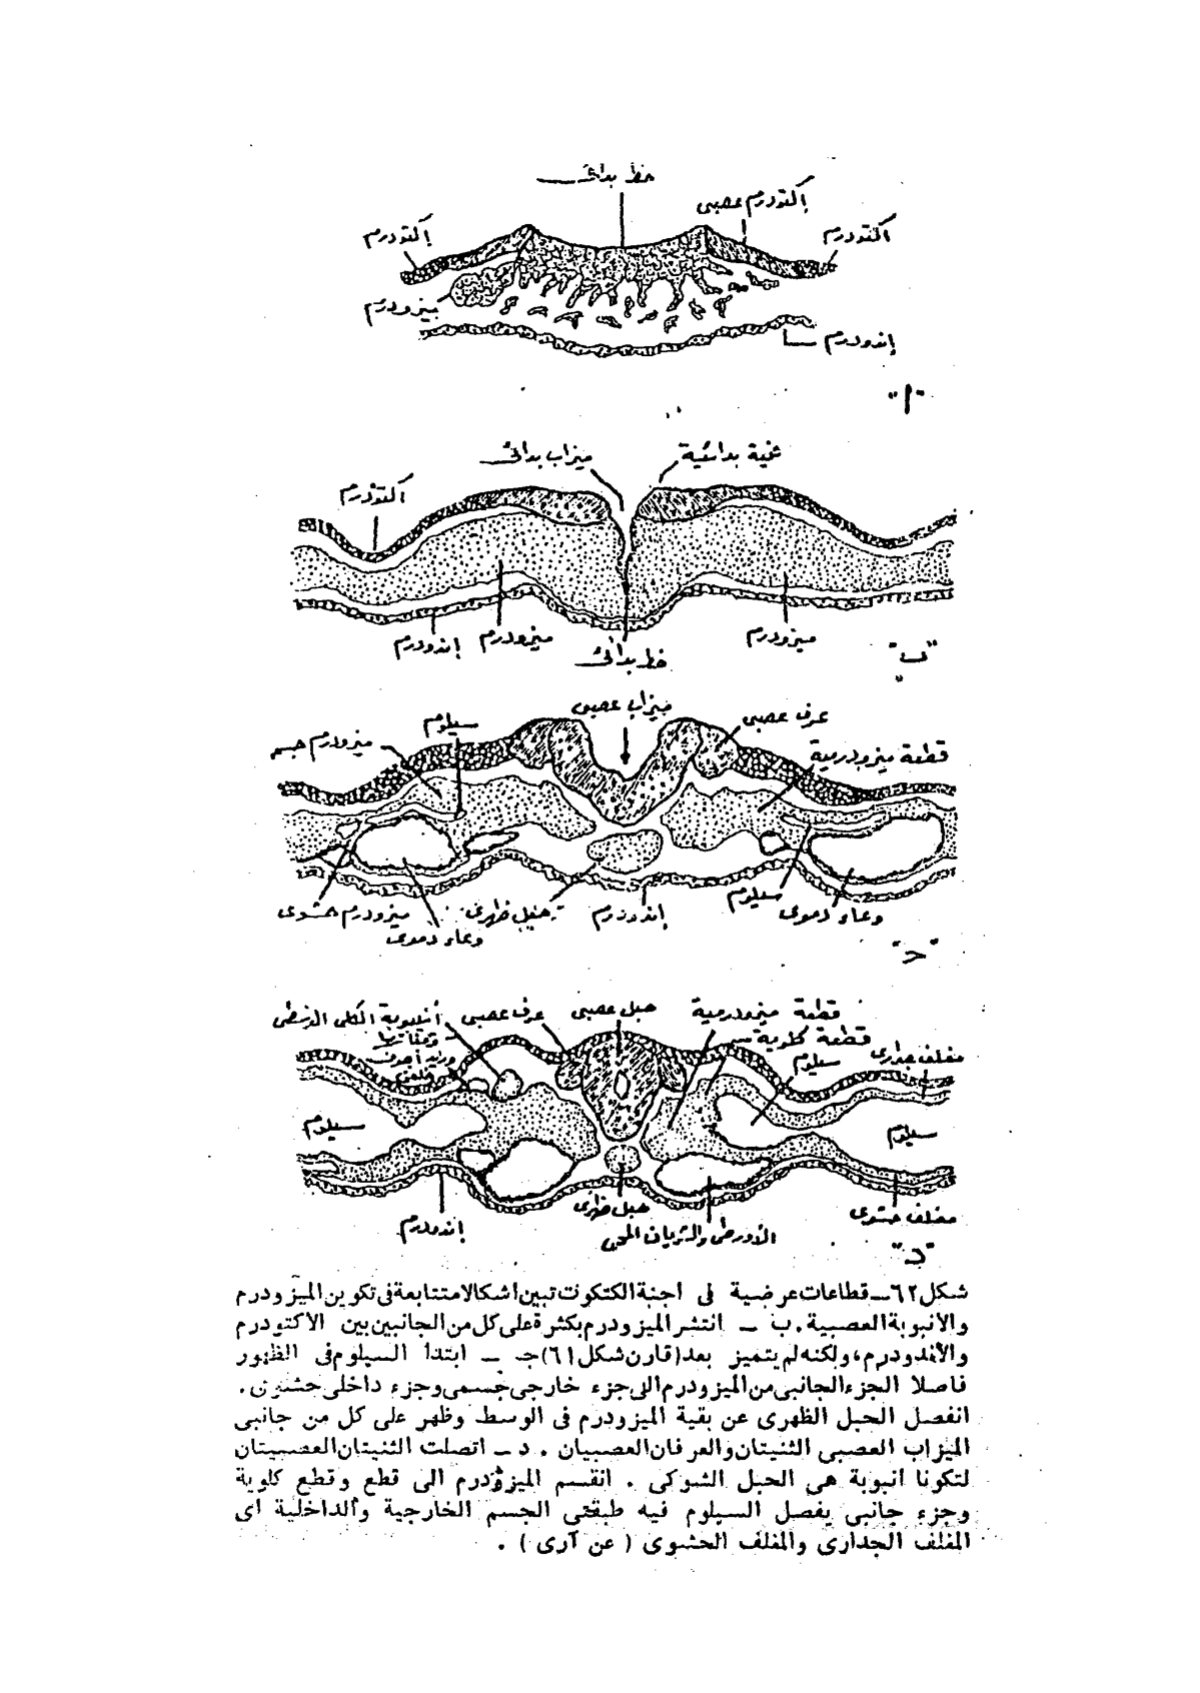 خط بدائى
إكتودرم عصبى
إكتودرم
اكتودرم
ميزودرم
إندودرم
"ا"
ميزاب بدائى
ثنية بدائية
اكتودرم
إندودرم
ميزودرم
خط بدائى
ميزودرم
"ب"
ميزاب عصبى
عرف عصبى
سيلوم
ميزودرم جسمى
قطعة ميزودرمية
ميزودرم حشوى
وعاء دموى
حبل ظهرى
إندودرم
سيلوم
وعاء دموى
"ج"
أنبوبة الكلى الوسطى
عرف عصبى
حبل عصبى
قطعة ميزودرمية
قطعة كلوية
سيلوم
مغلف جدارى
وريد أجوف
سيلوم
سيلوم
إندودرم
حبل ظهرى
الأورطى والشريان المحى
مغلف حشوى
"د"
شكل ٦٢ــ قطاعات عرضية فى اجنة الكتكوت تبين اشكالا متتابعة فى تكوين الميزودرم
والانبوبة العصبية . ب ــ انتشر الميزودرم بكثرة على كل من الجانبين بين الاكتودرم
والأندودرم، ولكنه لم يتميز بعد ( قارن شكل ٦١ ) جـ ــ ابتدأ السيلوم فى الظهور
فاصلا الجزء الجانبى من الميزودرم الى جزء خارجى جسمى وجزء داخلى حشوى .
انفصل الحبل الظهرى عن بقية الميزودرم فى الوسط وظهر على كل من جانبى
الميزاب العصبى الثنيتان والعرفان العصبيان . د ــ اتصلت الثنيتان العصبيتان
لتكونا انبوبة هى الحبل الشوكى . انقسم الميزودرم الى قطع وقطع كلوية
وجزء جانبى يفصل السيلوم فيه طبقتى الجسم الخارجية والداخلية اى
المغلف الجدارى والمغلف الحشوى ( عن آرى ) .